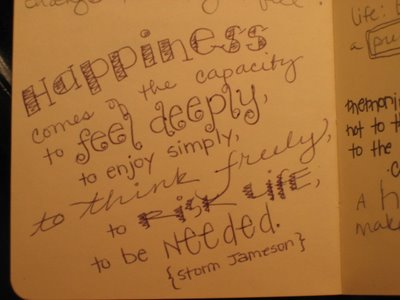 Happiness
comes of the capacity
to feel deeply,
to enjoy simply,
to think freely,
to risk life,
to be needed.
{Storm Jameson}
life:
a
memori
not to t
to the
A h
make